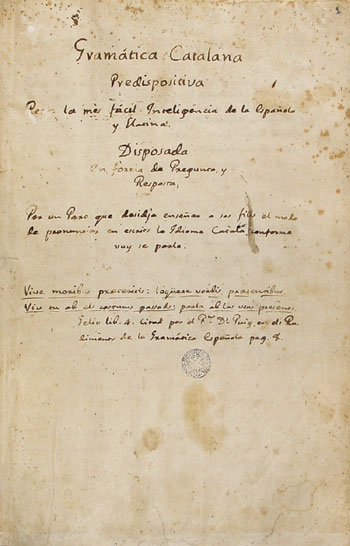 Gramática Catalana
Predispositiva
Per la mes fácil Inteligéncia de la Española
y Llatina
Disposada
en forma de Pregunta, y
Resposta,
Per un Pare que desidja enseñar a sos fills el modo
de pronunciar en escrits lo Idioma Catalá, conforme
vuy se parla.
Vive moribus præteritis: loquere verbis præsentibus
Viu en ab de costums passads: parla ab las veus presens.
Gelio lib. 4. Citad per el Rnt. Dr. Puig, en els Ru-
diments de la Gramática Española pag. 8.